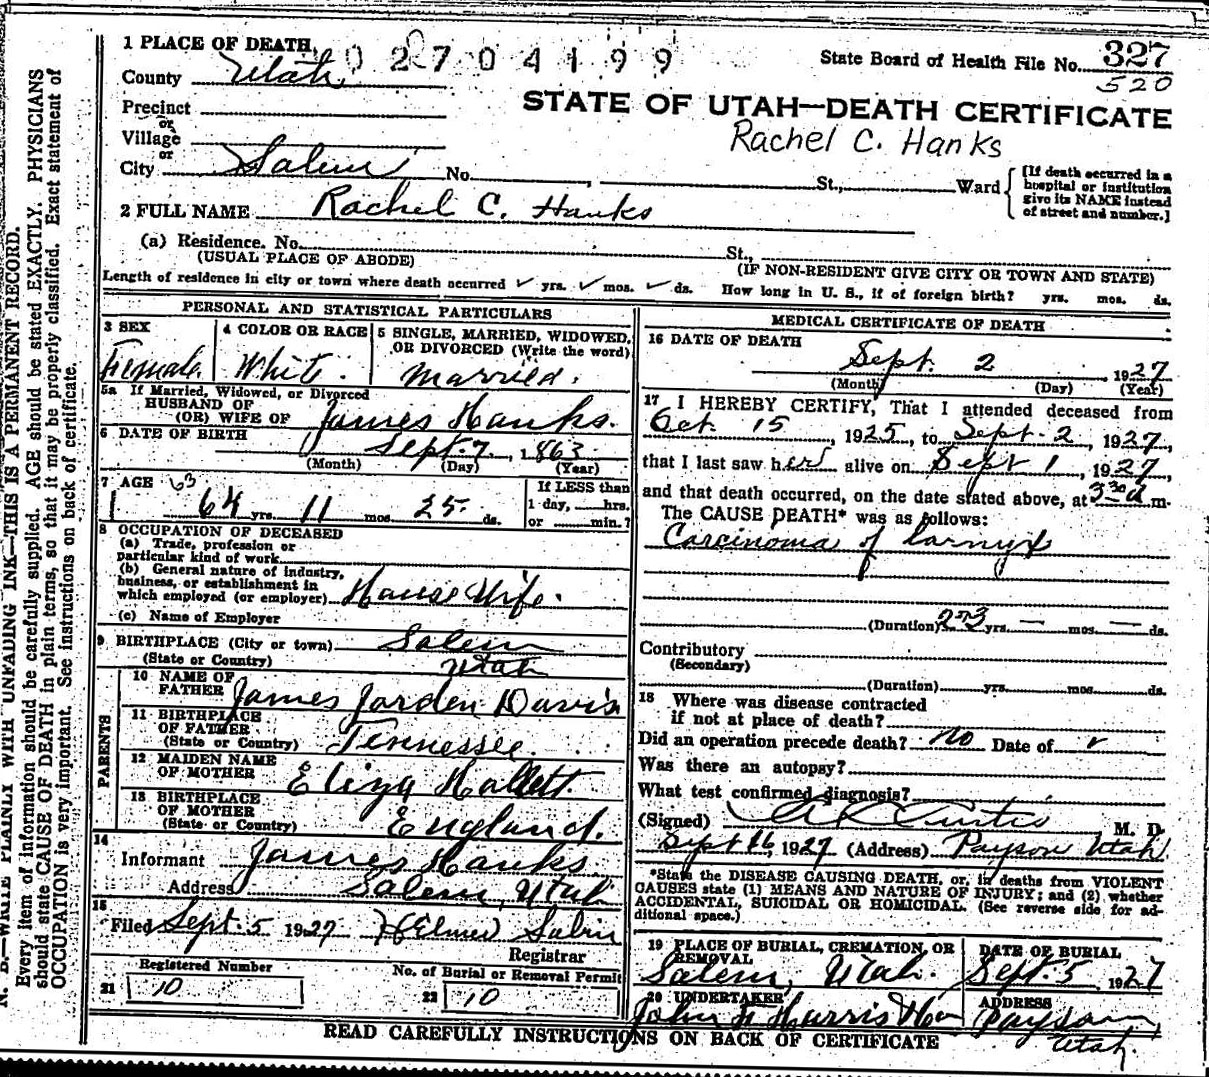 1 PLACE OF DEATH, 02704199 State Board of Health File No. 327
County Utah 520
STATE OF UTAH—DEATH CERTIFICATE
Precinct
or
Village
or
Rachel C. Hanks
City Salem No. , St., Ward
[If death occurred in a
hospital or institution
give its NAME instead
of street and number.]
2 FULL NAME Rachel C. Hanks
(a) Residence. No. St.,
(USUAL PLACE OF ABODE) (IF NON-RESIDENT GIVE CITY OR TOWN AND STATE)
Length of residence in city or town where death occurred ✓ yrs. ✓ mos. ✓ ds. How long in U. S., if of foreign birth? yrs. mos. ds.
PERSONAL AND STATISTICAL PARTICULARS
3 SEX
Female
4 COLOR OR RACE
White.
5 SINGLE, MARRIED, WIDOWED,
OR DIVORCED (Write the word)
Married.
5a If Married, Widowed, or Divorced
HUSBAND OF
(OR) WIFE OF James Hanks.
6 DATE OF BIRTH Sept. 7, 1863
(Month) (Day) (Year)
7 AGE 63
64 yrs. 11 mos. 25 ds.
If LESS than
1 day, hrs.
or min.?
8 OCCUPATION OF DECEASED
(a) Trade, profession or
particular kind of work
(b) General nature of industry,
business, or establishment in
which employed (or employer) House Wife.
(c) Name of Employer
9 BIRTHPLACE (City or town) Salem
(State or Country) Utah
PARENTS
10 NAME OF
FATHER James Jorden Davis
11 BIRTHPLACE
OF FATHER
(State or Country) Tennessee.
12 MAIDEN NAME
OF MOTHER Eliza Hallett.
13 BIRTHPLACE
OF MOTHER
(State or Country) England.
14
Informant James Hanks
Address Salem, Utah
15
Filed Sept. 5 1927 H Elmer Sabin
Registrar
Registered Number
21 10
No. of Burial or Removal Permit
22 10
MEDICAL CERTIFICATE OF DEATH
16 DATE OF DEATH
Sept. 2, 1927
(Month) (Day) (Year)
17 I HEREBY CERTIFY, That I attended deceased from
Oct. 15, 1925, to Sept. 2, 1927,
that I last saw her alive on Sept 1, 1927,
and that death occurred, on the date stated above, at 3 30 a m.
The CAUSE DEATH* was as follows:
Carcinoma of larnyx
(Duration) 2-3 yrs. — mos. — ds.
Contributory
(Secondary)
(Duration) yrs. mos. ds.
18 Where was disease contracted
if not at place of death?
Did an operation precede death? no Date of
Was there an autopsy?
What test confirmed diagnosis?
(Signed) Curtis M. D.
Sept 16, 1927 (Address) Payson Utah
*State the DISEASE CAUSING DEATH, or, in deaths from VIOLENT
CAUSES state (1) MEANS AND NATURE OF INJURY; and (2) whether
ACCIDENTAL, SUICIDAL OR HOMICIDAL. (See reverse side for ad-
ditional space.)
19 PLACE OF BURIAL, CREMATION, OR
REMOVAL
Salem, Utah.
DATE OF BURIAL
Sept. 5 1927
20 UNDERTAKER
John Harris
ADDRESS
Payson,
Utah.
READ CAREFULLY INSTRUCTIONS ON BACK OF CERTIFICATE
N. B.—WRITE PLAINLY WITH UNFADING INK—THIS IS A PERMANENT RECORD.
Every item of information should be carefully supplied. AGE should be stated EXACTLY. PHYSICIANS
should state CAUSE OF DEATH in plain terms, so that it may be properly classified. Exact statement of
OCCUPATION is very important. See instructions on back of certificate.